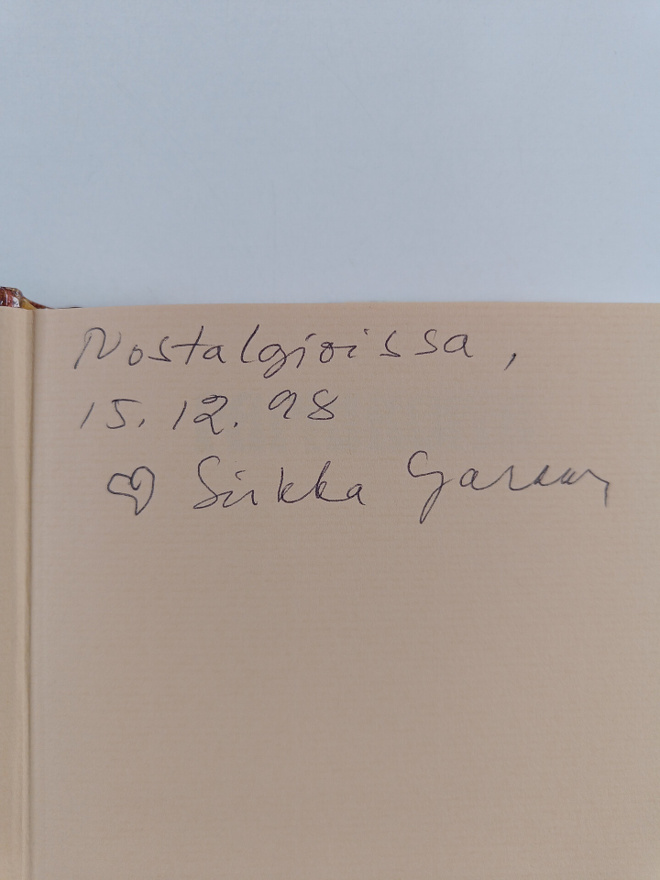 Nostalgioissa,
15.12.98
♡ Sirkka Garam